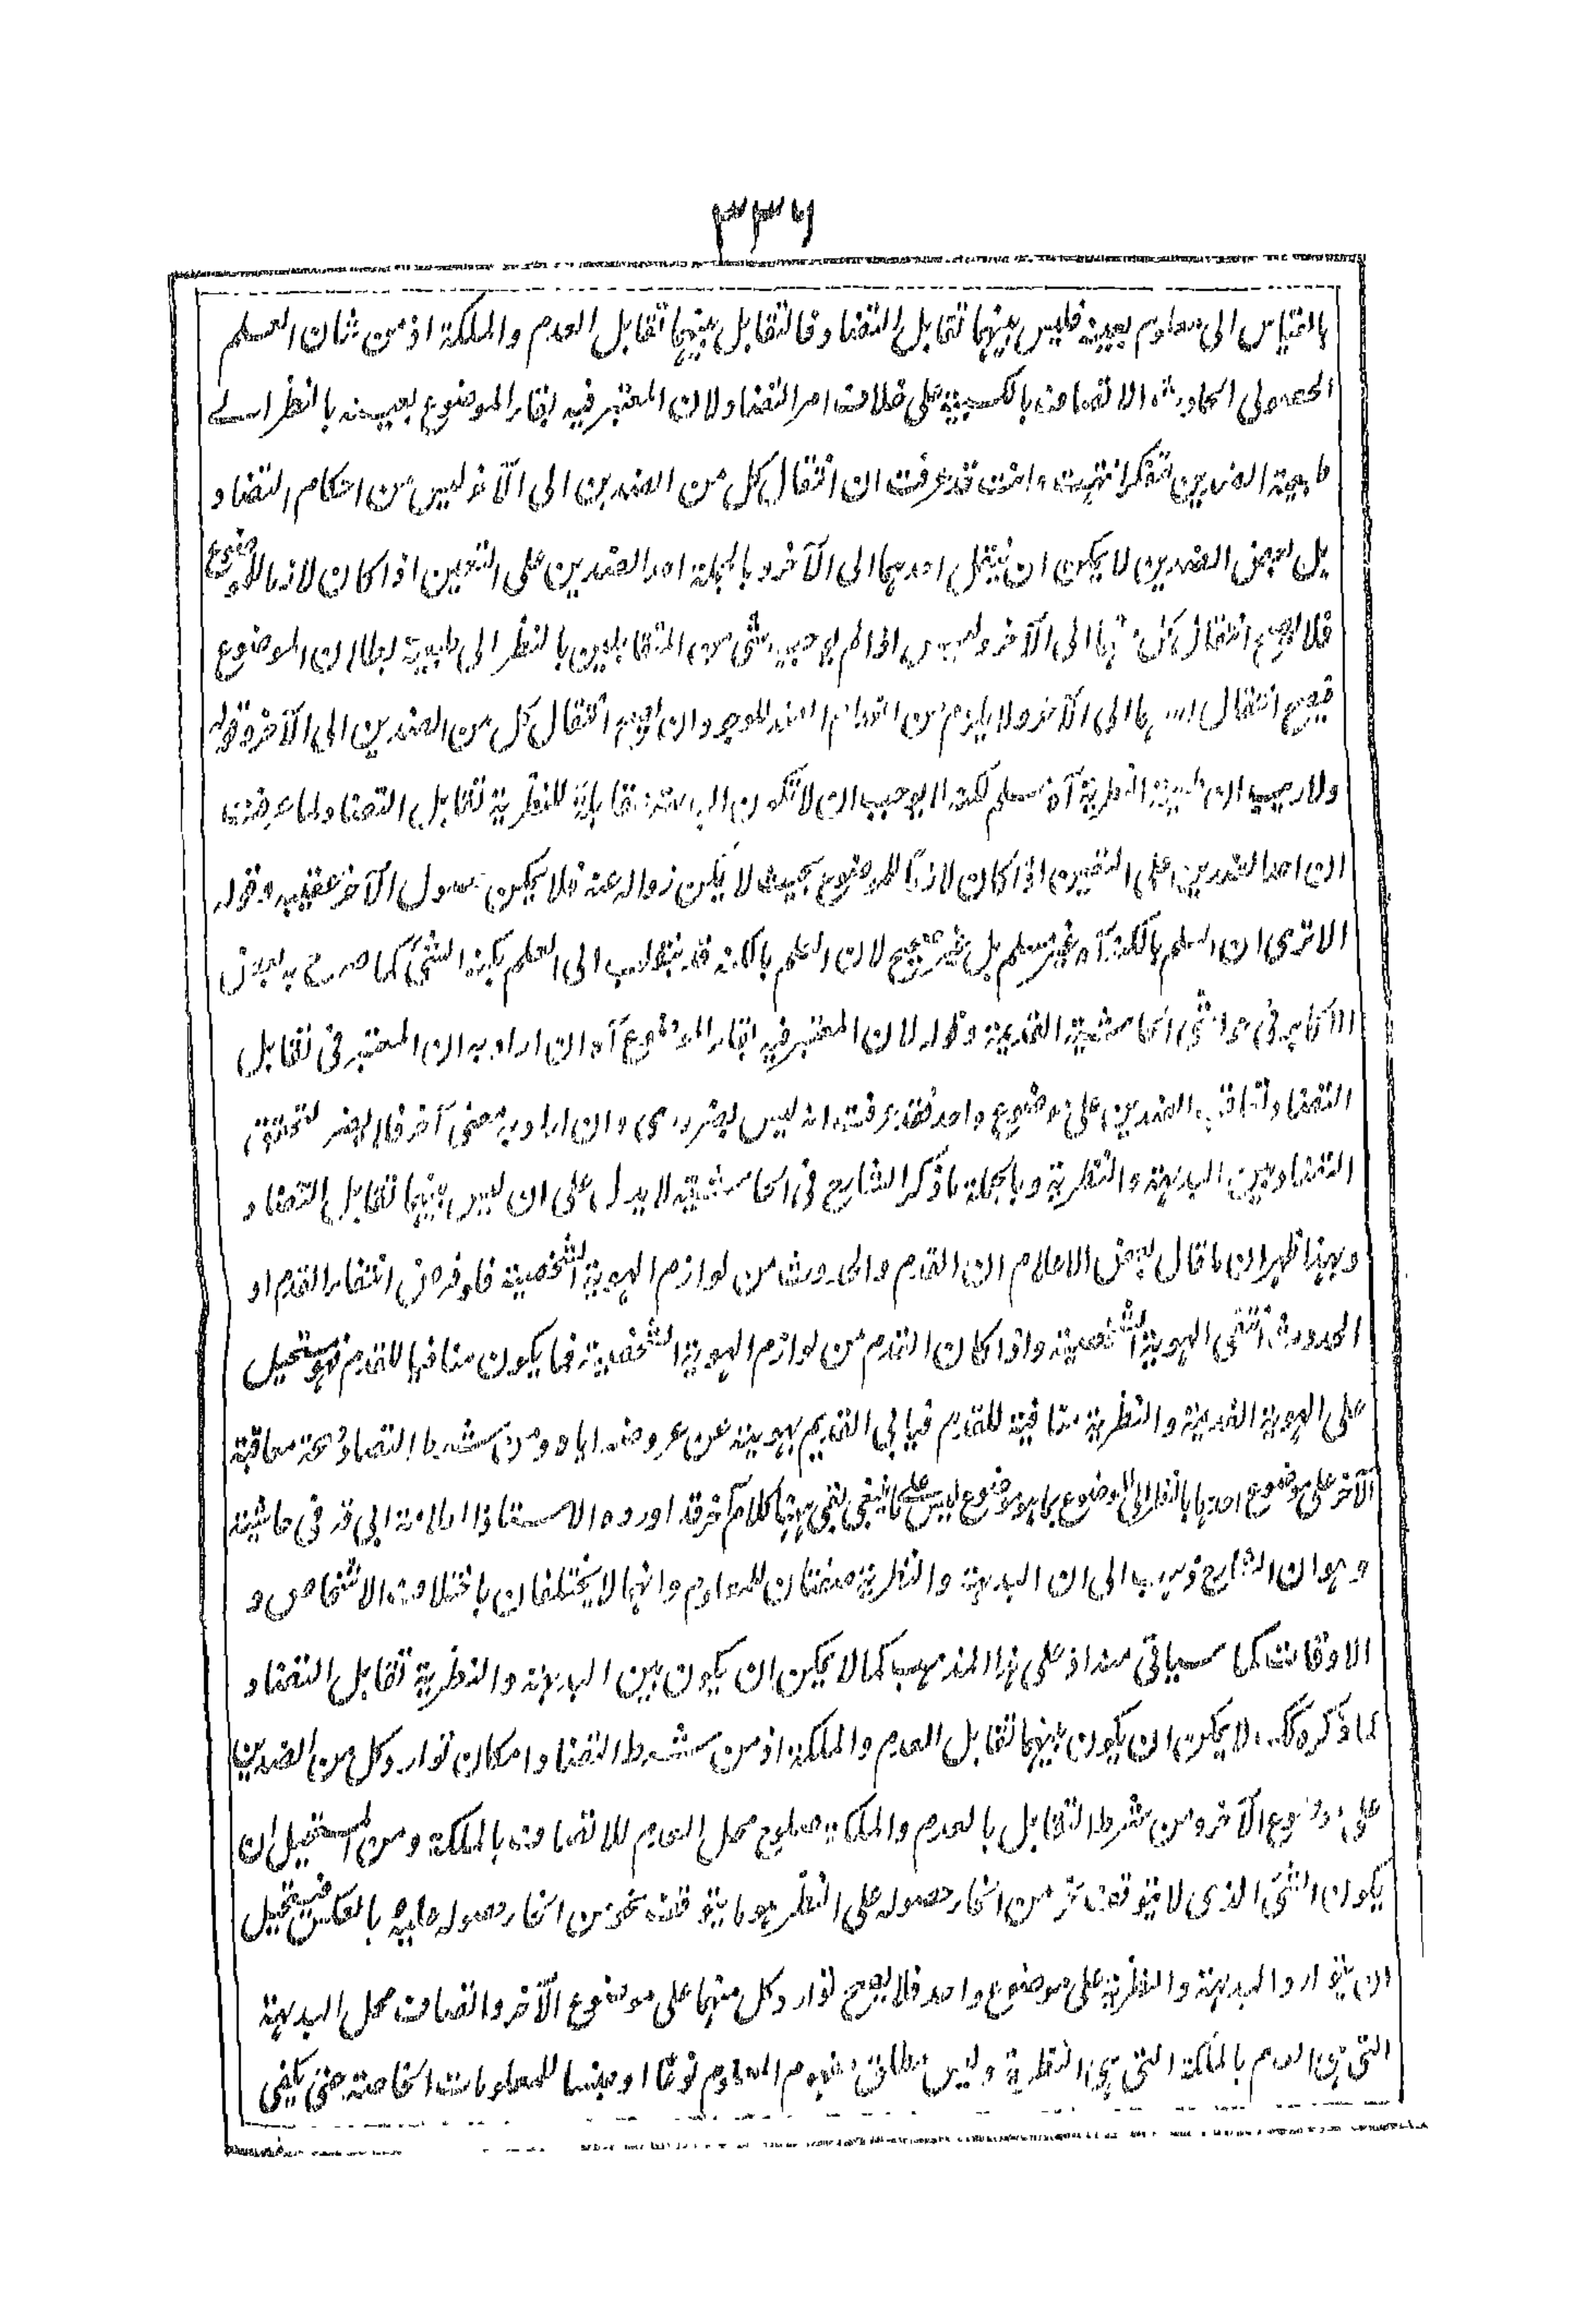 ٣٣٦
بالقياس الى معلوم بعينه فليس بينهما تقابل التضاد فالتقابل بينهما تقابل العدم والملكة اذ من شان العلم
الحصولى الحادث الاتصاف بالكسبية على خلاف امر التضاد لان المعتبر فيه بقاء الموضوع بعينه بالنظر الى
طبيعة الضدين تفكر انتهت وانت قد عرفت ان انتقال كل من الضدين الى الآخر ليس من احكام التضاد
بل بعض الضدين لا يمكن ان ينتقل احدهما الى الآخر وبالجملة احد الضدين على التعيين اذا كان لازما للموضوع
فلا يصح انتقال كل منهما الى الآخر وليس اذا لم يوجب شئ من المتقابلين بالنظر الى طبيعة بطلان الموضوع
فيصح انتقال احدهما الى الآخر ولا يلزم من انعدام الضد الموجود ان يصح انتقال كل من الضدين الى الآخر وقوله
ولا ريب ان طبيعة النظرية آه مسلم لكنه لا يوجب ان لا تكون البداهة مقابلة للنظرية تقابل التضاد لما عرفت
ان احد الضدين على التعيين اذا كان لازما للموضوع بحيث لا يمكن زواله عنه فلا يمكن حصول الآخر عقيبه وقوله
الا ترى ان العلم بالكنه آه غير مسلم بل غير صحيح لان العلم بالكنه قد ينقلب الى العلم بكنه الشئ كما صرح به بعض
الاكابر فى حواشى الحاشية القديمة وقوله لان المعتبر فيه بقاء الموضوع آه ان اراد به ان المعتبر فى تقابل
التضاد تعاقب الضدين على موضوع واحد فقد عرفت انه ليس بضرورى وان اراد به معنى آخر فلا يضر لتحقق
التضاد بين البديهة والنظرية وبالجملة ما ذكر الشارح فى الحاشية لا يدل على ان ليس بينهما تقابل التضاد
وبهذا ظهر ان ما قال بعض الاعلام ان القدم والحدوث من لوازم الهوية الشخصية فلو فرض انتفاء القدم او
الحدوث انتفى الهوية الشخصية واذا كان القدم من لوازم الهوية الشخصية فما يكون منافيا للقدم فهو مستحيل
على الهوية القديمة والنظرية منافية للقدم فيابى القديم بهويته عن عروضه اياه ومن شرط التضاد صحة معاقبة
الآخر على موضوع احدهما بالنظر الى الموضوع بما هو موضوع ليس على ما ينبغى بقى ههنا كلام آخر قد اورده الاستاذ العلامة ابى قد فى حاشية
وهو ان الشارح ذهب الى ان البديهة والنظرية صفتان للمعلوم وانهما لا يختلفان باختلاف الاشخاص و
الاوقات كما سياتى منه اذ على هذا المذهب كما لا يمكن ان يكون بين البديهة والنظرية تقابل التضاد
لما ذكره كك لا يمكن ان يكون بينهما تقابل العدم والملكة اذ من شرط التضاد امكان توارد كل من الضدين
على موضوع الآخر ومن شرط التقابل بالعدم والملكة صلوح محل العدم للاتصاف بالملكة ومن المستحيل ان
يكون الشئ الذى لا يتوقف نحو من انحاء حصوله على النظر هو ما يتوقف نحو من انحاء حصوله عليه بالعكس فيستحيل
ان يتوارد البديهة والنظرية على موضوع واحد فلا يصح توارد كل منهما على موضوع الآخر واتصاف محل البديهة
التى هى العدم بالملكة التى هى النظرية وليس مطلق مفهوم المعلوم نوعا او جنسا للمعلومات الخاصة حتى يكفى